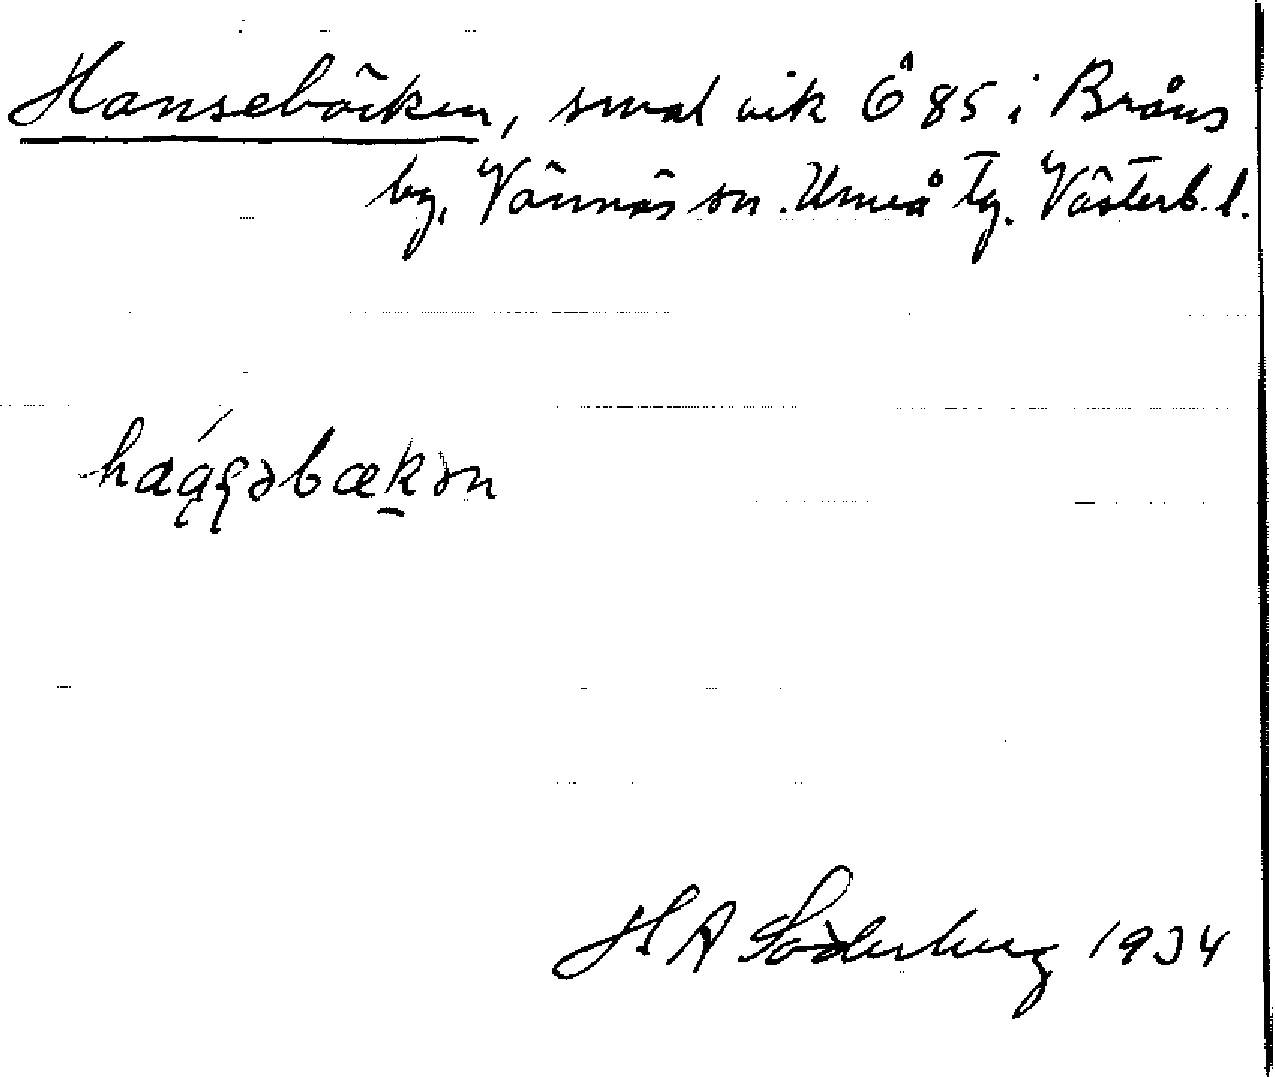 Hansebäcken, smal vik 6^A 85 i Bråns
by, Vännäs sn. Umeå tg. Västerb. l.
H A Söderberg 1934